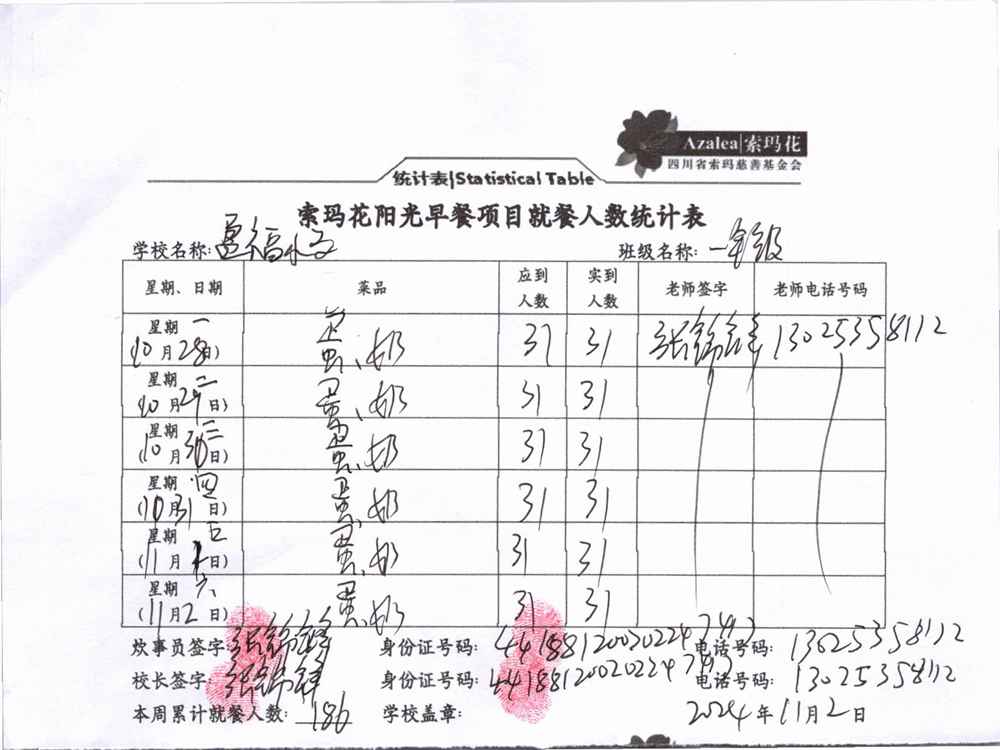 Azalea|索玛花
四川省索玛慈善基金会
统计表|Statistical Table
索玛花阳光早餐项目就餐人数统计表
学校名称: 班级名称: 一年级
星期、日期 菜品 应到人数 实到人数 老师签字 老师电话号码
星期 一 (10月28日) 蛋、奶 31 31 张锦锋 13025358112
星期 二 (10月29日) 蛋、奶 31 31
星期 三 (10月30日) 蛋、奶 31 31
星期 四 (10月31日) 蛋、奶 31 31
星期 五 (11月1日) 蛋、奶 31 31
星期 六 (11月2日) 蛋、奶 31 31
炊事员签字: 张锦锋 身份证号码: 电话号码: 13025358112
校长签字: 张锦锋 身份证号码: 电话号码: 13025358112
本周累计就餐人数: 186 学校盖章: 2024年11月2日